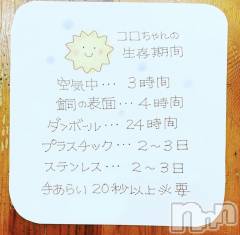 コロちゃんの
生存期間
空気中… 3時間
銅の表面… 4時間
ダンボール… 24時間
プラスチック… 2〜3日
ステンレス… 2〜3日
手あらい 20秒以上必要